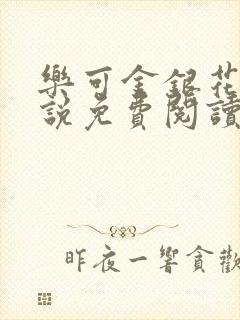 樂可金銀花
說免費閱讀
昨夜一響貪歡